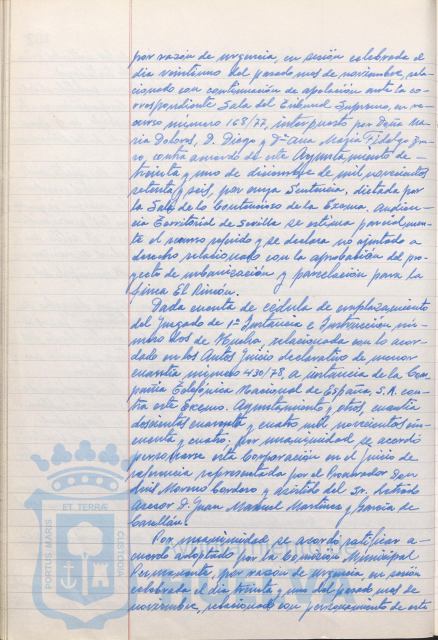 por razón de urgencia, en sesión celebrada el
día veintiuno del pasado mes de noviembre, rela-
cionado con continuación de apelación ante la co-
rrespondiente Sala del Tribunal Supremo, en re-
curso número 168/77, interpuesto por Doña Ma
ria Dolores, D. Diego y Dª Ana María Fidalgo
ro, contra acuerdo de este Ayuntamiento de
treinta y uno de diciembre de mil novecientos
setenta y seis, por cuya Sentencia, dictada por
la Sala de lo Contencioso de la Excma. Audien-
cia Territorial de Sevilla se estima parcialmen-
te el recurso referido y se declara no ajustado a
derecho relacionado con la aprobación del pro-
yecto de urbanización y parcelación para la
finca El Rincón.
Dada cuenta de cédula de emplazamiento
del Juzgado de 1ª Instancia e Instrucción nú-
mero dos de Huelva, relacionada con lo acor-
dado en los Autos Juicio declarativo de menor
cuantía número 430/78, a instancia de la Com
pañía Telefónica Nacional de España, S.A. con-
tra este Excmo. Ayuntamiento y otros, cuantía
doscientas cuarenta y cuatro mil novecientos cin-
cuenta y cuatro. Por unanimidad se acordó
personarse esta Corporación en el juicio de
referencia representada por el Procurador Don
Luis Moreno Cordero y asistido del Sr. Letrado
Asesor D. Juan Manuel Martínez y García de
Por unanimidad se acordó ratificar a-
cuerdo adoptado por la Comisión Municipal
Permanente, por razón de urgencia en sesión
celebrada el día treinta y uno del pasado mes de
noviembre, relacionado con personamiento de este
PORTUS MARIS
ET TERRÆ
CUSTODIA